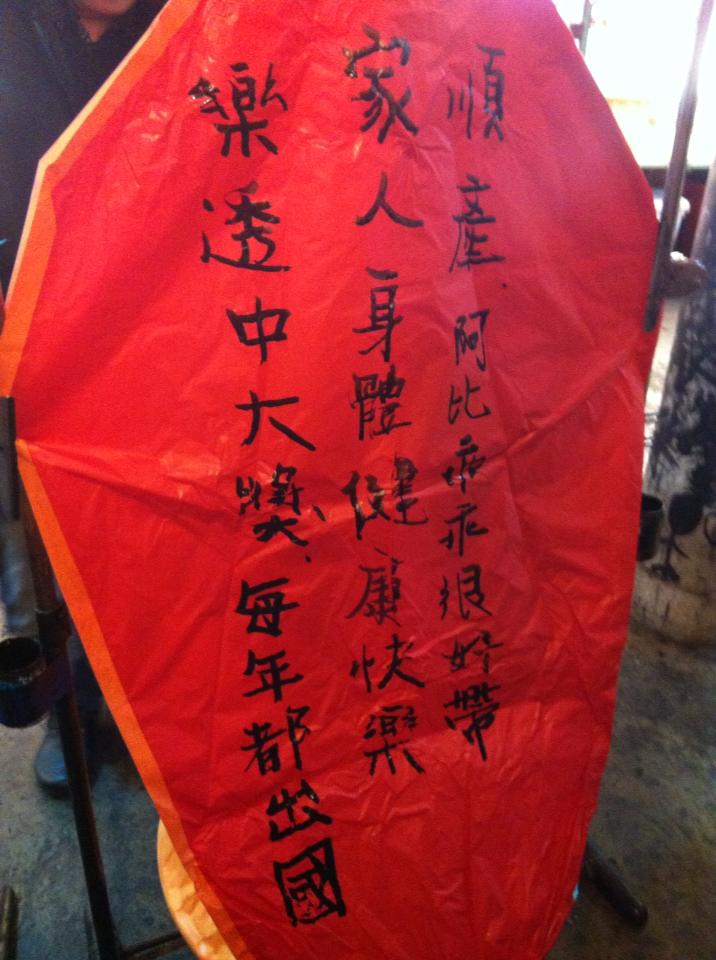 順產.阿比乖乖很好帶
家人身體健康快樂
樂透中大獎.每年都出國